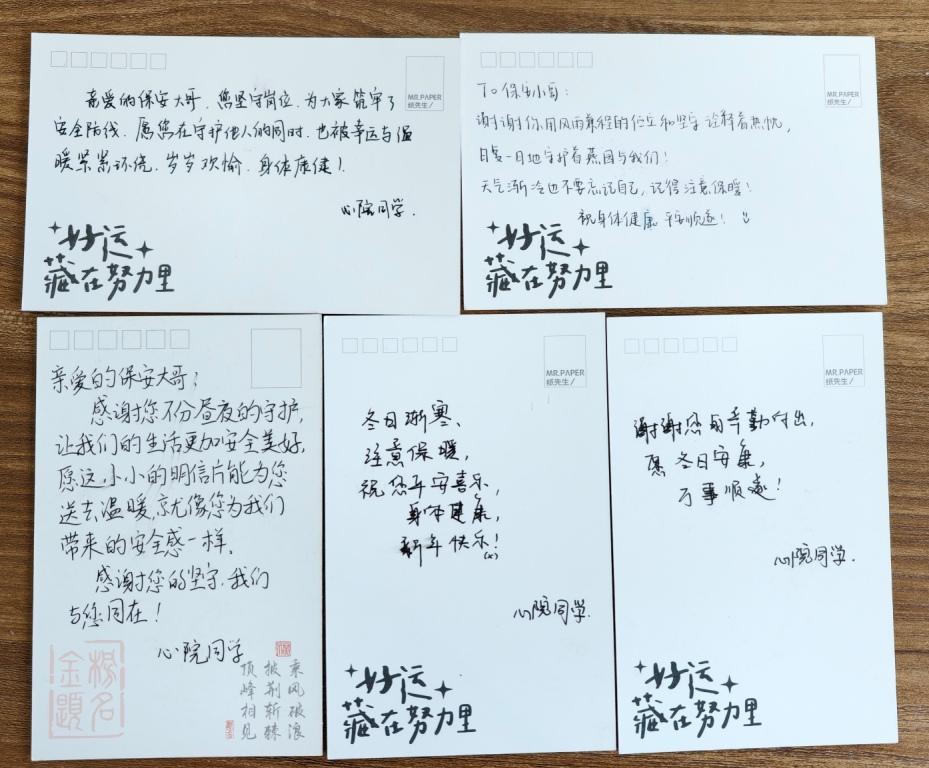 亲爱的保安大哥,您坚守岗位,为大家筑牢了
安全防线。愿您在守护他人的同时,也被幸运与温
暖紧紧环绕,岁岁欢愉,身体康健!
心院同学.
MR.PAPER
纸先生/
好运
藏在努力里
To 保安小哥:
谢谢你用风雨兼程的伫立和坚守诠释着热忱,
日复一日地守护着燕园与我们!
天气渐冷也不要忘记自己,记得注意保暖!
祝身体健康 平安顺遂!
MR.PAPER
纸先生/
好运
藏在努力里
亲爱的保安大哥:
感谢您不分昼夜的守护,
让我们的生活更加安全美好,
愿这小小的明信片能为您
送去温暖,就像您为我们
带来的安全感一样。
感谢您的坚守,我们
与您同在!
心院同学
金榜题名
乘风破浪
披荆斩棘
顶峰相见
冬日渐寒、
注意保暖,
祝您平安喜乐,
身体健康,
新年快乐!
心院同学.
MR.PAPER
纸先生/
好运
藏在努力里
谢谢您的辛勤付出,
愿冬日安康,
万事顺遂!
心院同学.
MR.PAPER
纸先生/
好运
藏在努力里